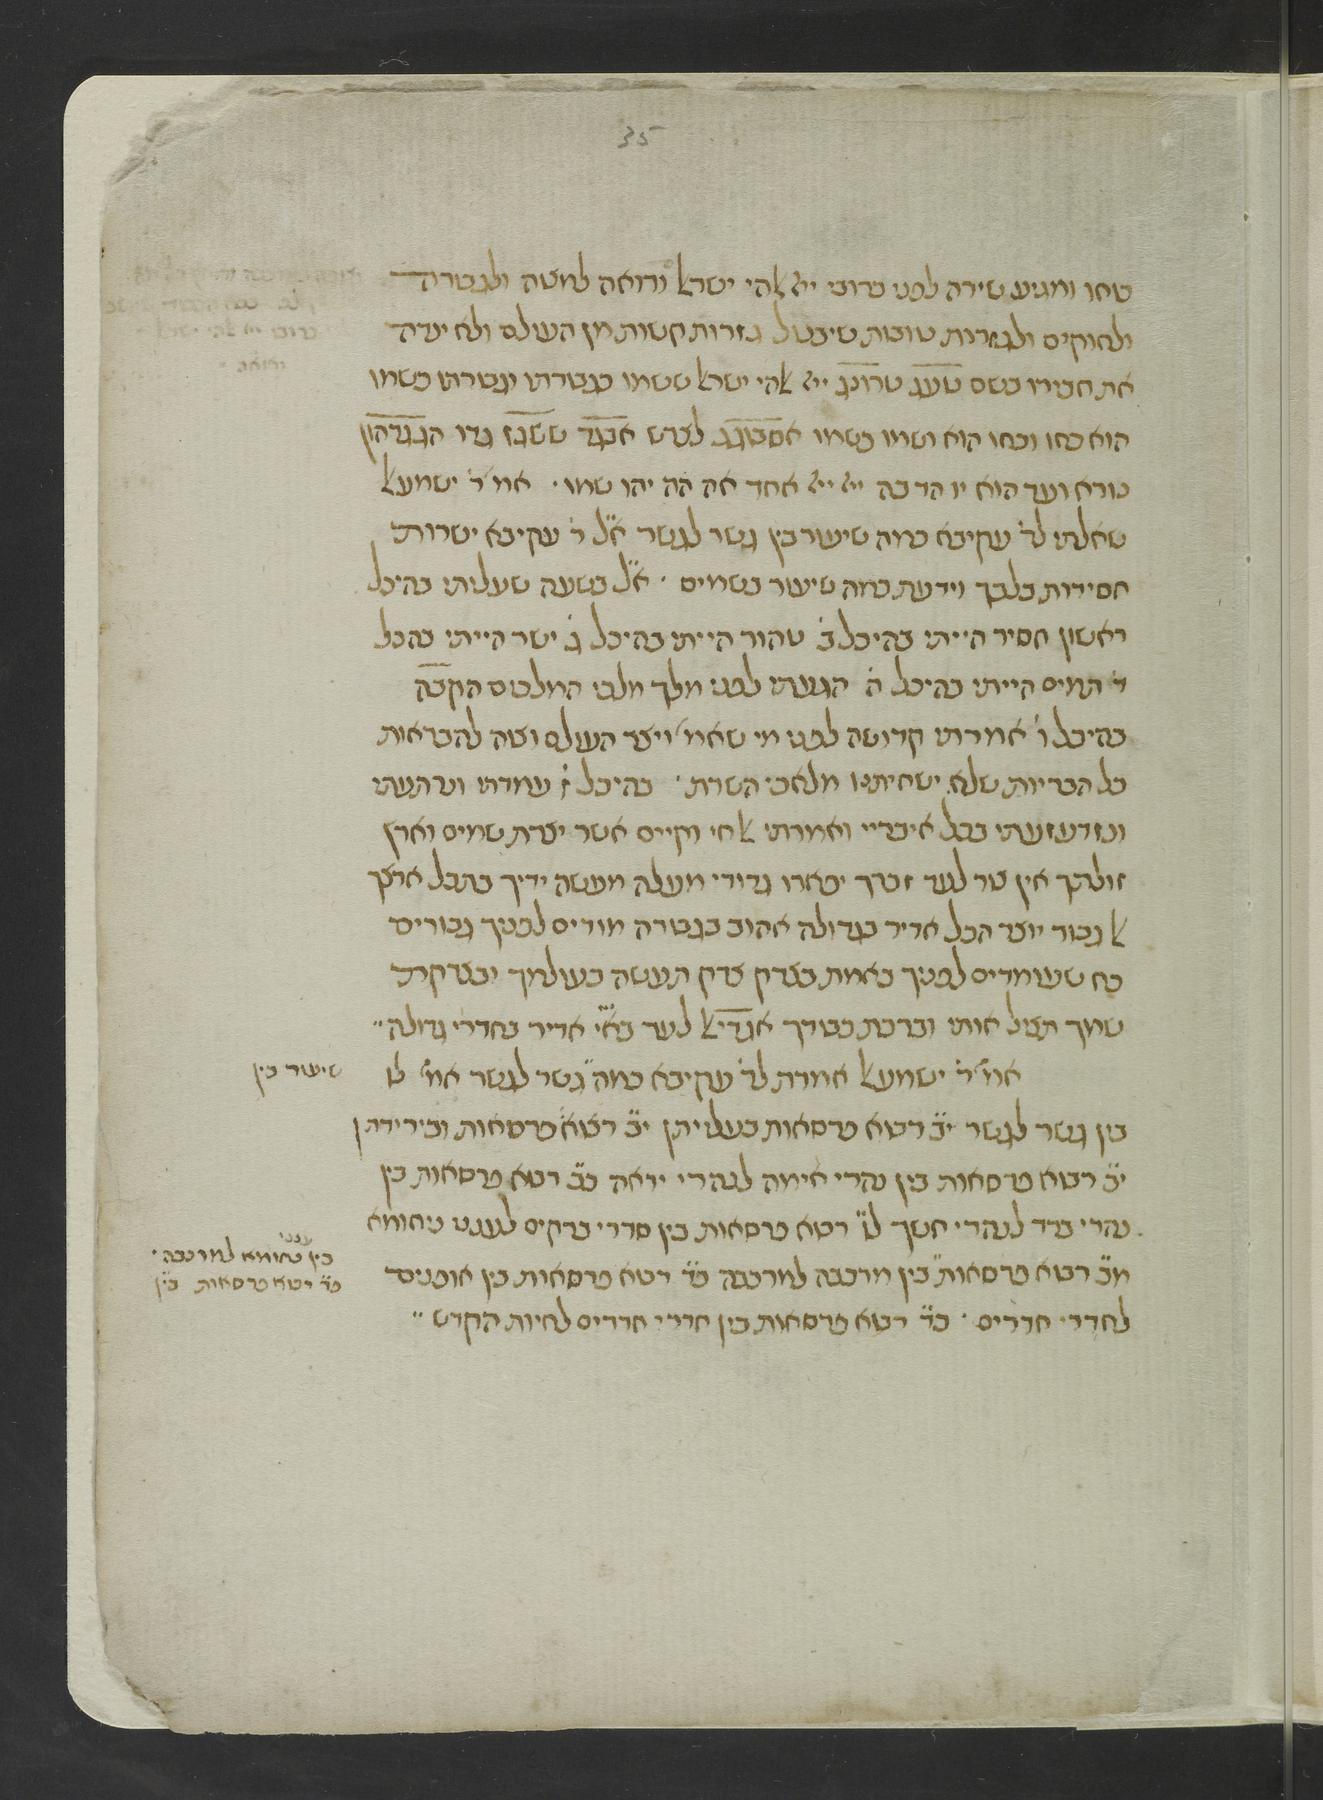 35
כוחו ומגיע שירה לפני כרובי ייי אלהי ישראל ורואה למעשה ולגבורה
ולחוקים ולגזרות טובות שיבטל גזרות קשות מן העולם ולא ינידה
את חבירו בשם טעגג טרונג ייי אלהי ישראל ששמו כגבורתו וגבורתו כשמו
הוא כחו וכחו הוא ושמו כשמו
נורא ועד הוא יו הד בה ייי ייי אחד אה הה יהו שמו · אמ׳ ר׳ ישמעאל
שאלתי לר׳ עקיבא כמה שיעור בין גשר לגשר א״ל ר׳ עקיבא ישרות
חסידות בלבך וידעת כמה שיעור בשמים · א״ל בשעה שעליתי בהיכל
ראשון חסיד הייתי בהיכל ב׳ טהור הייתי בהיכל ג׳ ישר הייתי בהכל
ד׳ תמים הייתי בהיכל ה׳ הגעתי לפני מלך מלכי המלכים הקבה
בהיכל ו׳ אמרתי קדושה לפני מי שאמ׳ ויצר העולם וצוה להבראות
כל הבריות שלא ישחיתוני מלאכי השרת · בהיכל ז׳ עמדתי ונרתעתי
ונזדעזעתי בכל איבריי ואמרתי אל חי וקיים אשר יצרת שמים וארץ
זולתך אין צור לעד זכרך יפארו גדודי מעלה מעשה ידיך בתבל ארצך
אל גבור יוצר הכל אדיר בגדולה אהוב בגבורה מודים לפניך גבורים
כח שעומדים לפניך באמת בצדק צדק תעשה בעולמך ובצדקת
שמך תציל אותי וברכת כבודך אגדיל לעד בא״י אדיר בחדרי גדולה ״
אמ׳ ר׳ ישמעאל אמרת לר׳ עקיבא כמה גשר לגשר אמ׳ לו
שיעור בין
בין גשר לגשר י״ב רבוא פרסאות בעליתן י״ב רבוא פרסאות ובירידתן
י״ב רבוא פרסאות בין נהרי אימה לנהרי יראה כ״ב רבוא פרסאות בין
נהרי ברד לנהרי חשך ל״ו רבוא פרסאות בין סדרי ברקים לענני ניחומא
מ״ב רבוא פרסאות בין מרכבה למרכבה כ״ד רבוא פרסאות בין אופנים
בין ענני ניחומא למרכבה ·
כ״ד רבוא פרסאות בין
לחדרי חדרים · כ״ד רבוא פרסאות בין חדרי חדרים לחיות הקדש ״